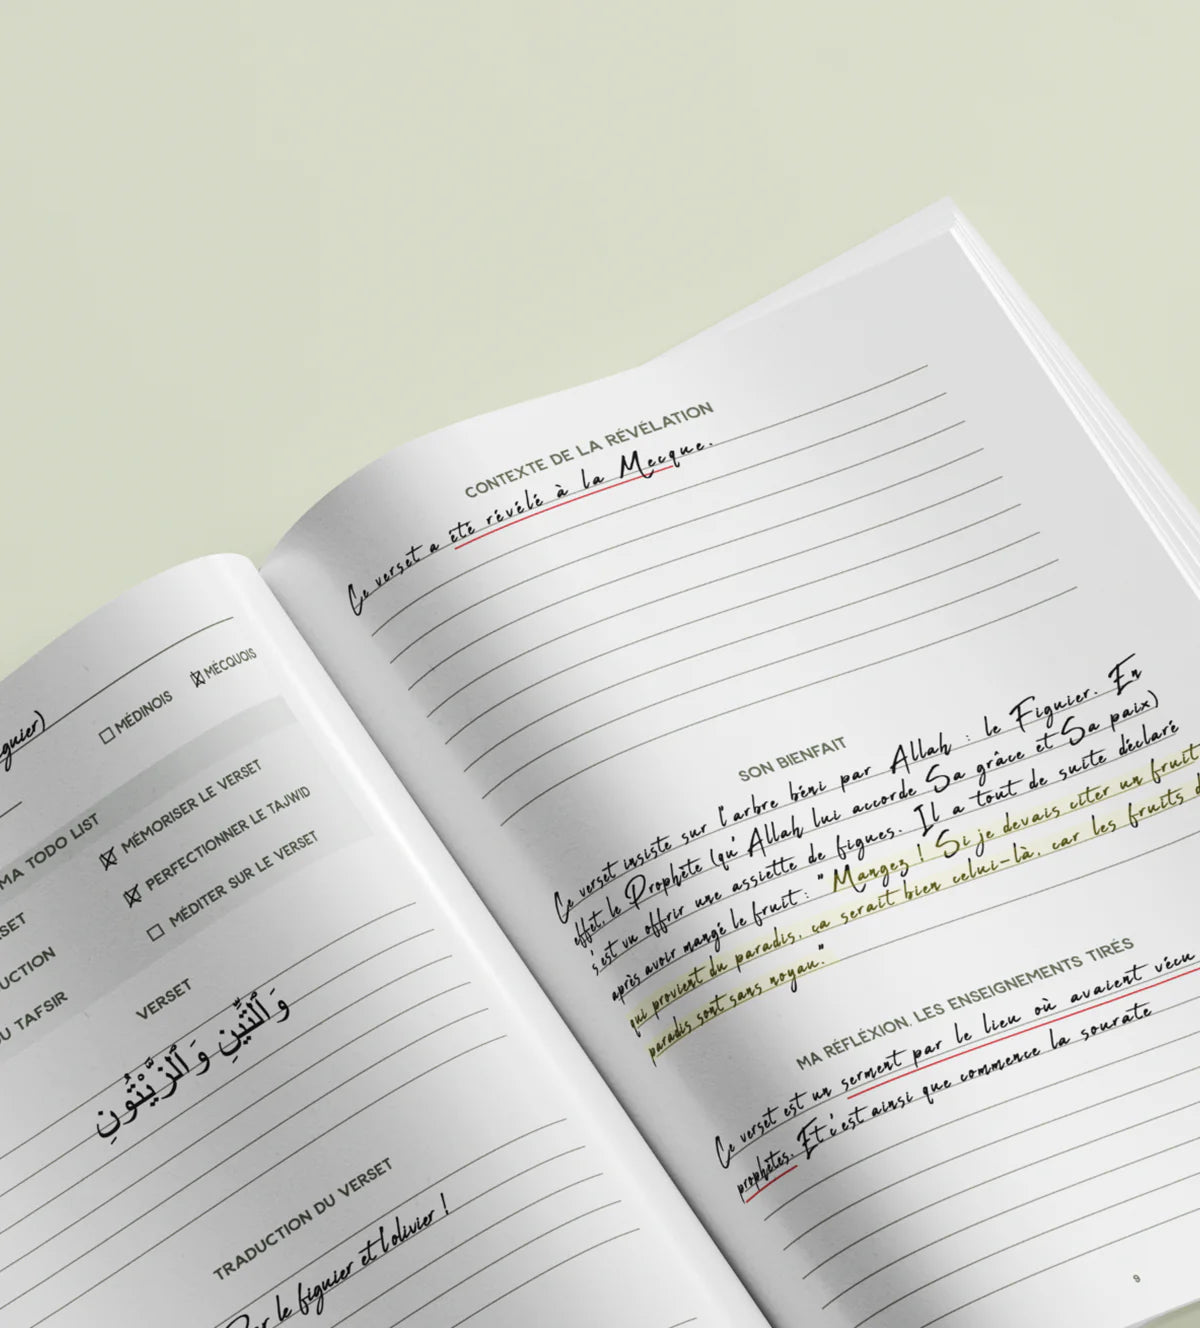 gnier)
MÉDINOIS MÉCQUOIS
MA TODO LIST
MÉMORISER LE VERSET
PERFECTIONNER LE TAJWID
MÉDITER SUR LE VERSET
VERSET
وَٱلتِّينِ وَٱلزَّيْتُونِ
TRADUCTION DU VERSET
Par le figuier et l'olivier !
CONTEXTE DE LA RÉVÉLATION
Ce verset a été révélé à la Mecque.
SON BIENFAIT
Ce verset insiste sur l'arbre béni par Allah : le Figuier. En
effet, le Prophète (qu'Allah lui accorde Sa grâce et Sa paix)
s'est vu offrir une assiette de figues. Il a tout de suite déclaré
après avoir mangé le fruit : "Mangez ! Si je devais citer un fruit
qui provient du paradis, ça serait bien celui-là, car les fruits d
paradis sont sans noyau."
MA RÉFLÉXION, LES ENSEIGNEMENTS TIRÉS
Ce verset est un serment par le lieu où avaient vécu
prophètes. Et c'est ainsi que commence la sourate
9